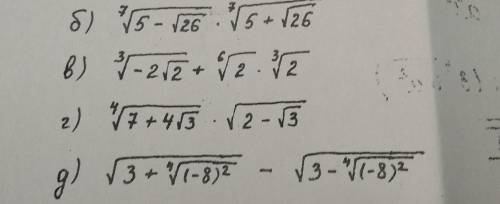 б) ⁷√(5 - √26) · ⁷√(5 + √26)
в) ³√(-2√2) + ⁶√2 · ³√2
г) ⁴√(7 + 4√3) · √(2 - √3)
д) √(3 + ⁴√((-8)²)) - √(3 - ⁴√((-8)²))